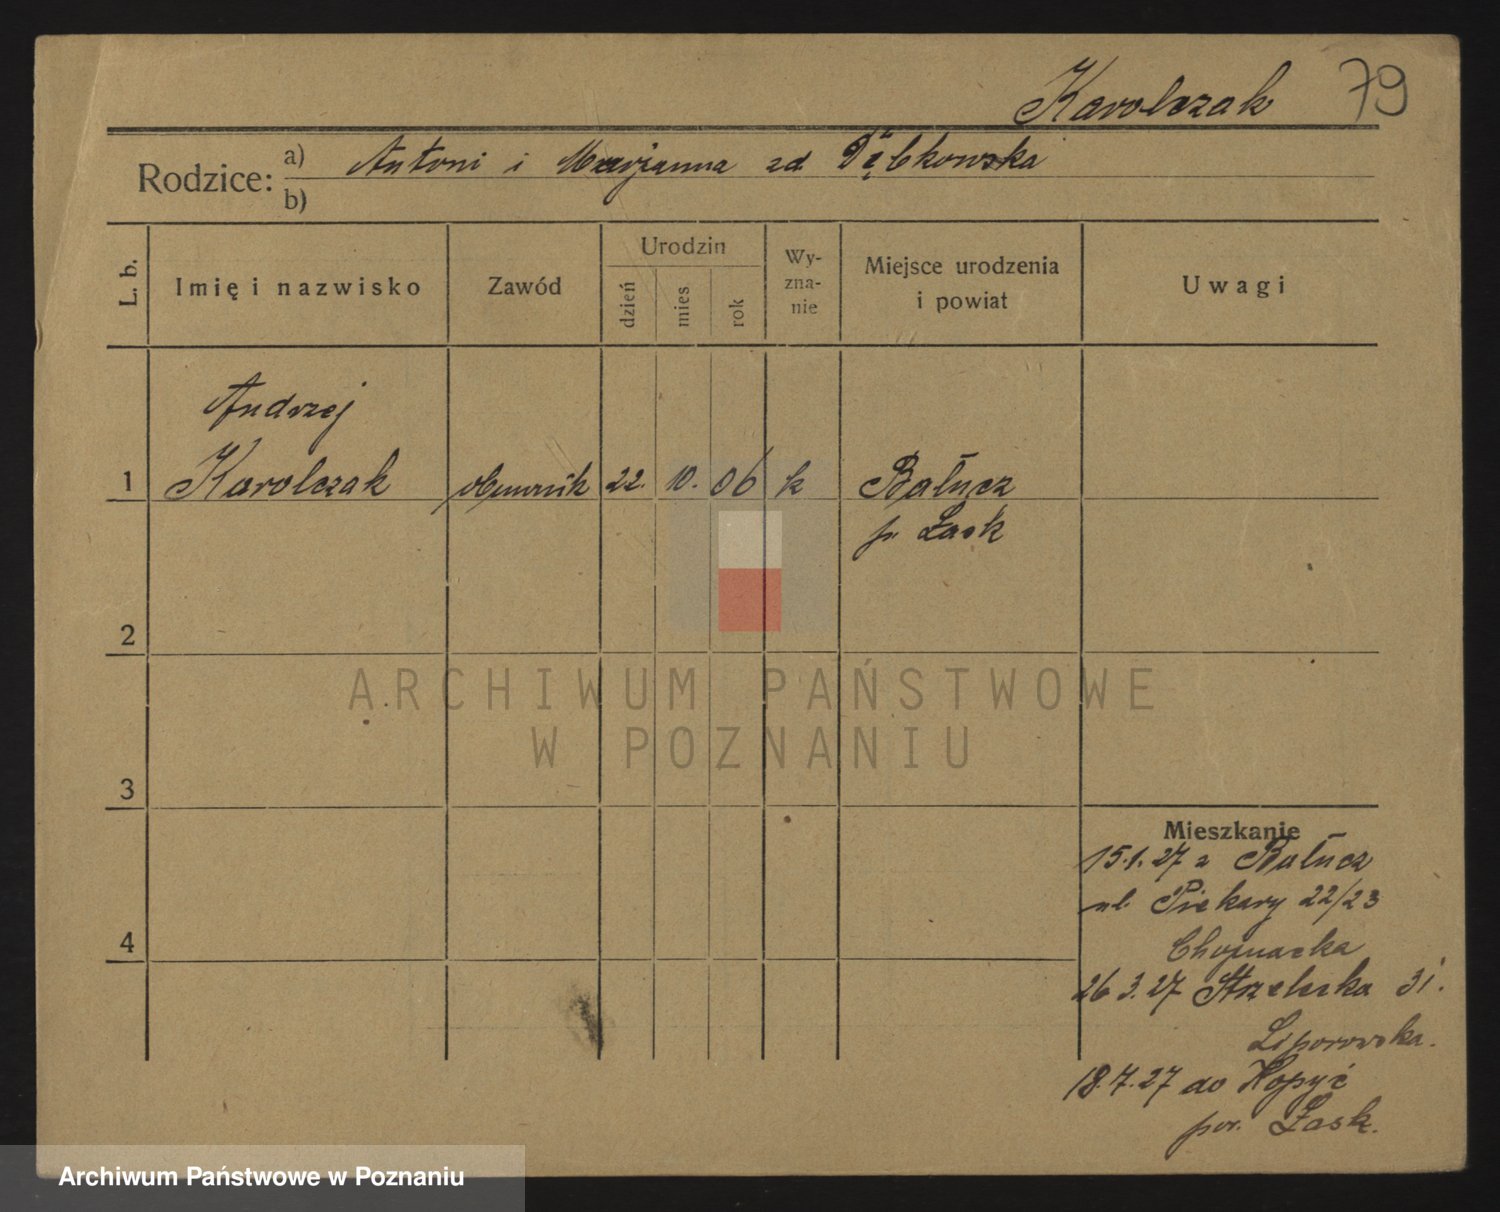 Karolczak 79
Rodzice: a) Antoni i Marjanna zd Dąbkowska
b)
L. b. Imię i nazwisko Zawód Urodzin dzień mies rok Wyznanie Miejsce urodzenia i powiat Uwagi
Andrzej
1 Karolczak 22. 10. 06 k Bałucz
p. Łask
2
ARCHIWUM PAŃSTWOWE
W POZNANIU
3
Mieszkanie
15.1.27 z Bałucz
ul. Piekary 22/23
Chojnacka
4
26 3.27 Strzelecka 31.
18.7.27 do Kopyść
pow. Łask.
Archiwum Państwowe w Poznaniu